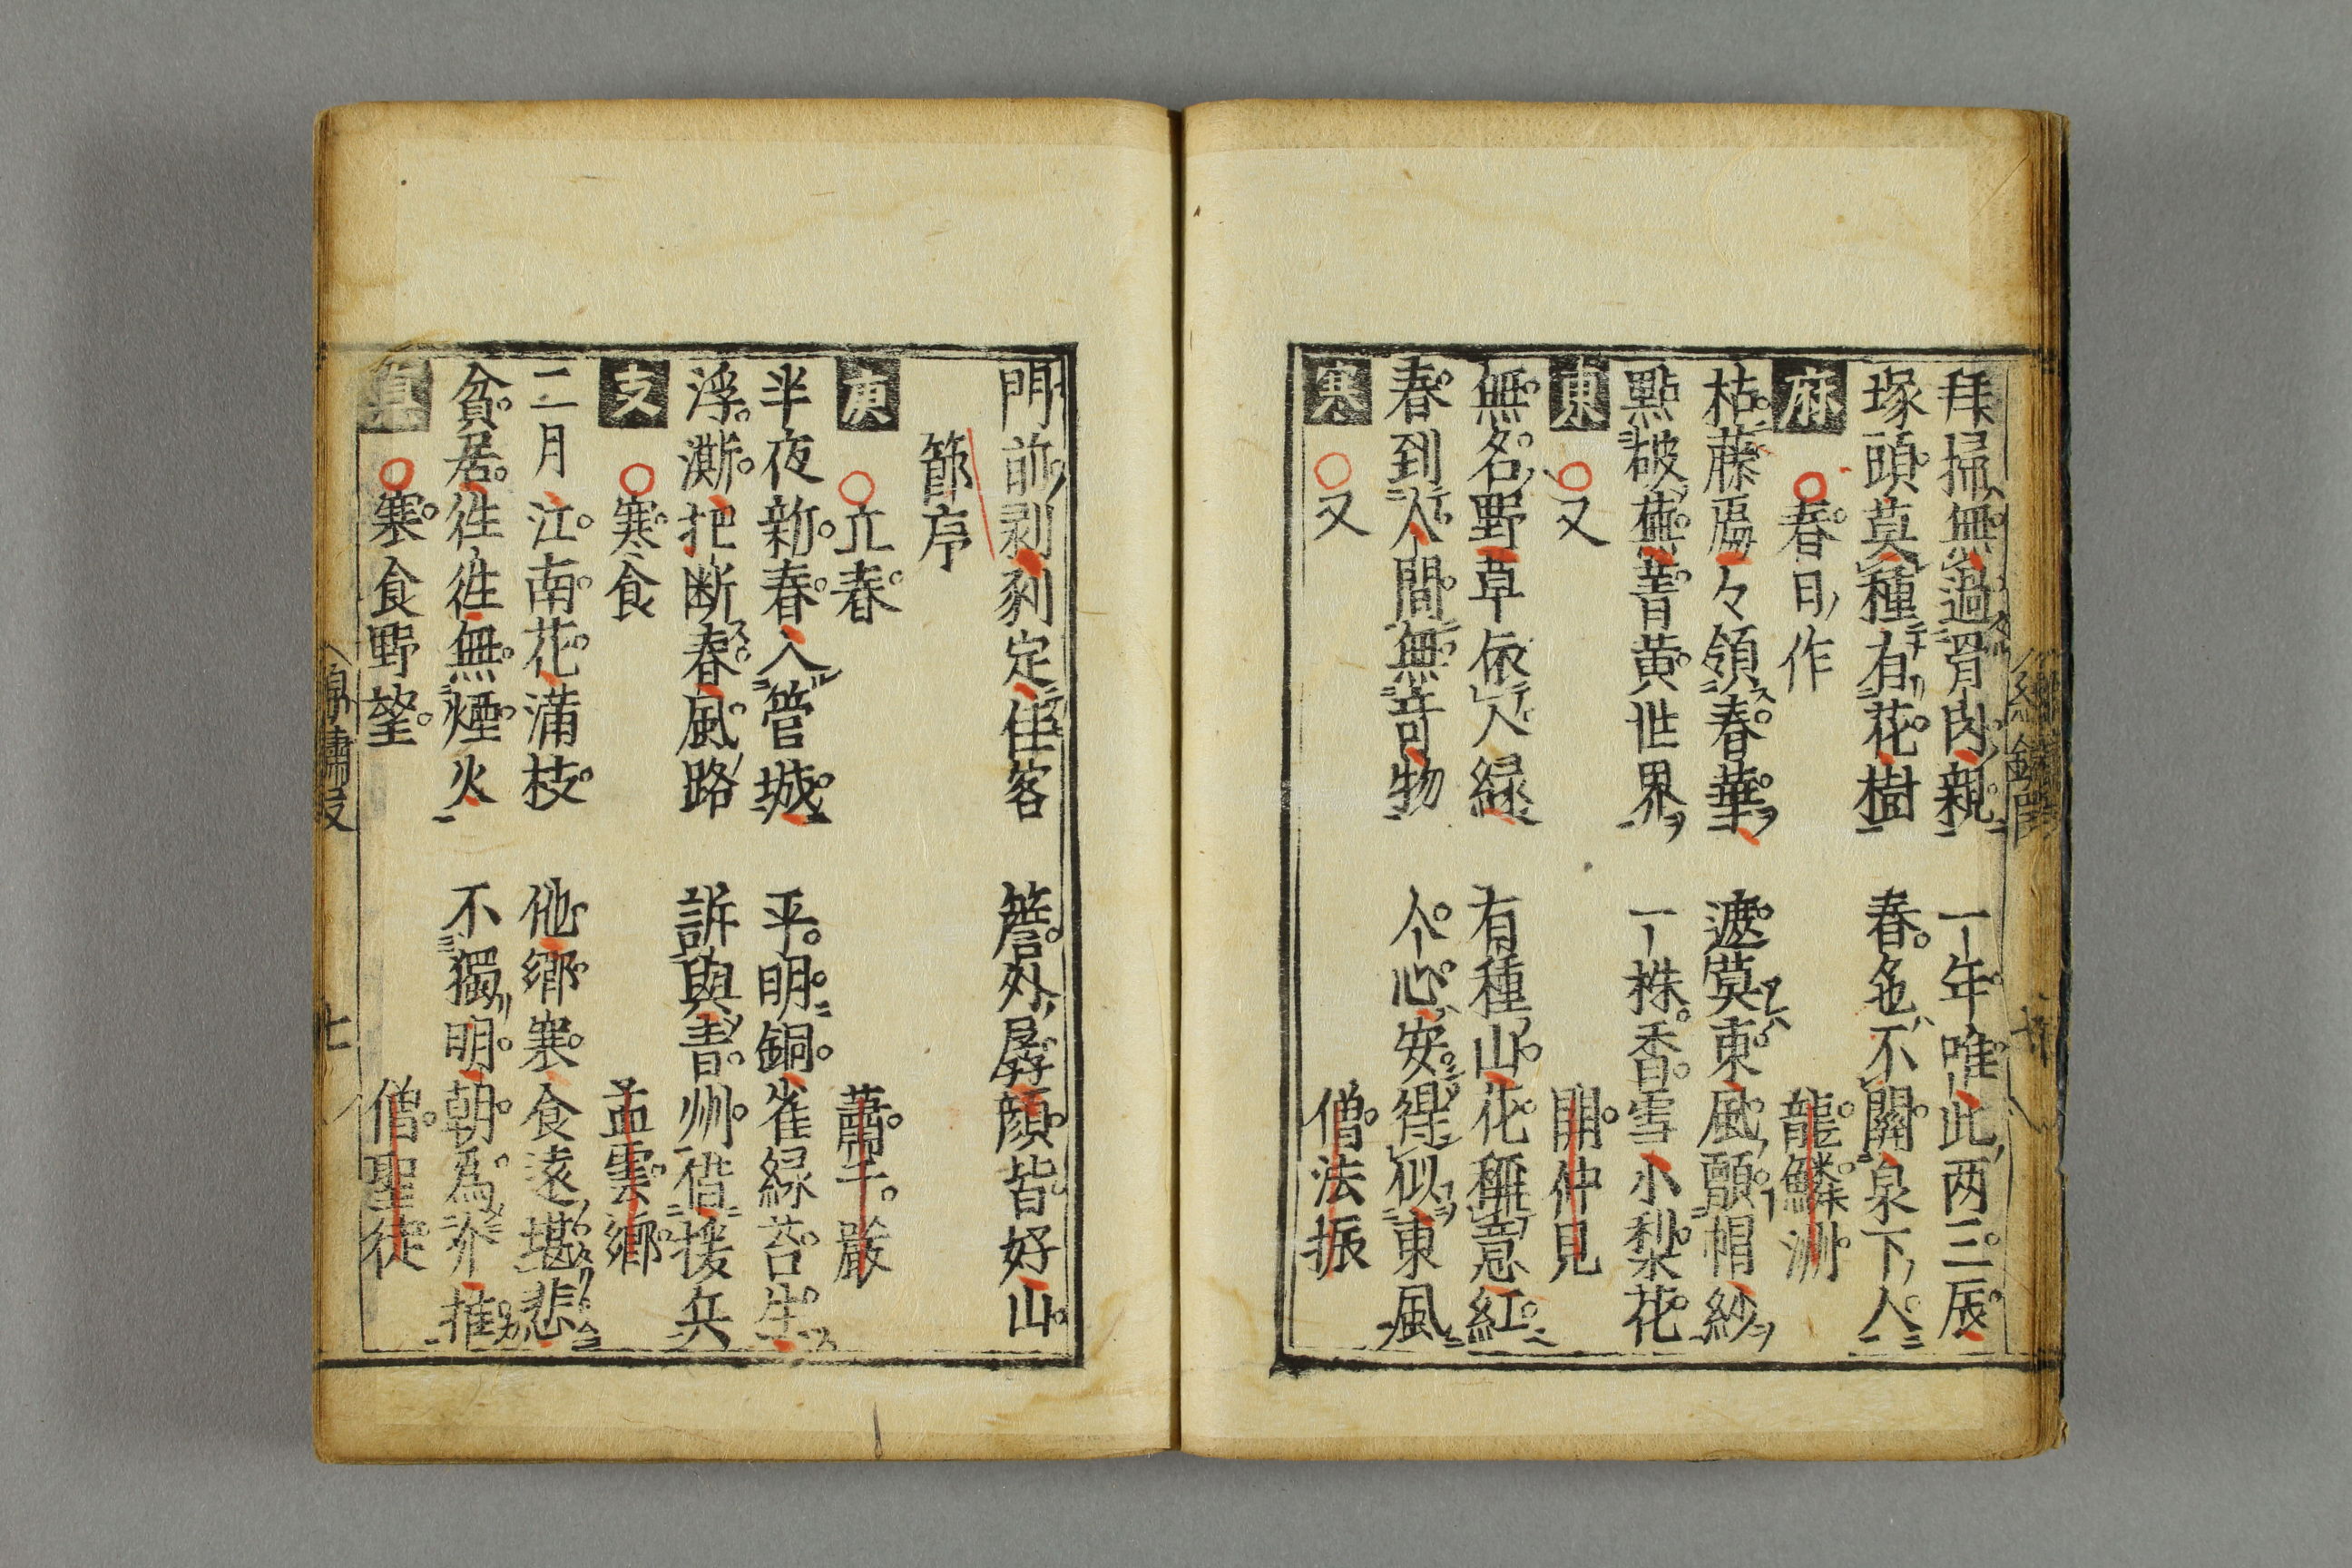 拜掃無過骨肉親　一年唯此两三辰
塚頭莫種有花樹　春色不關泉下人
麻　春日作　龍鱗洲
枯藤㧞々領春華　遮莫東風顫帽紗
點破蕪菁黄世界　一株香雪小梨花
東　又　開仲見
無名野草依人緑　有種山花稱意紅
春到人間無竒物　人心安得似東風
寒　又　僧法振
門前剥剥定佳客　簷外孱顔皆好山
節序
庚　立春　蕭千巖
半夜新春入管城　平明銅雀緑苔生
浮澌把断春風路　訴與青州借援兵
支　寒食　孟雲卿
二月江南花蒲枝　他郷寒食遠堪悲
貧居往往無煙火　不獨明朝為介推
寒食野望　僧聖徒
七